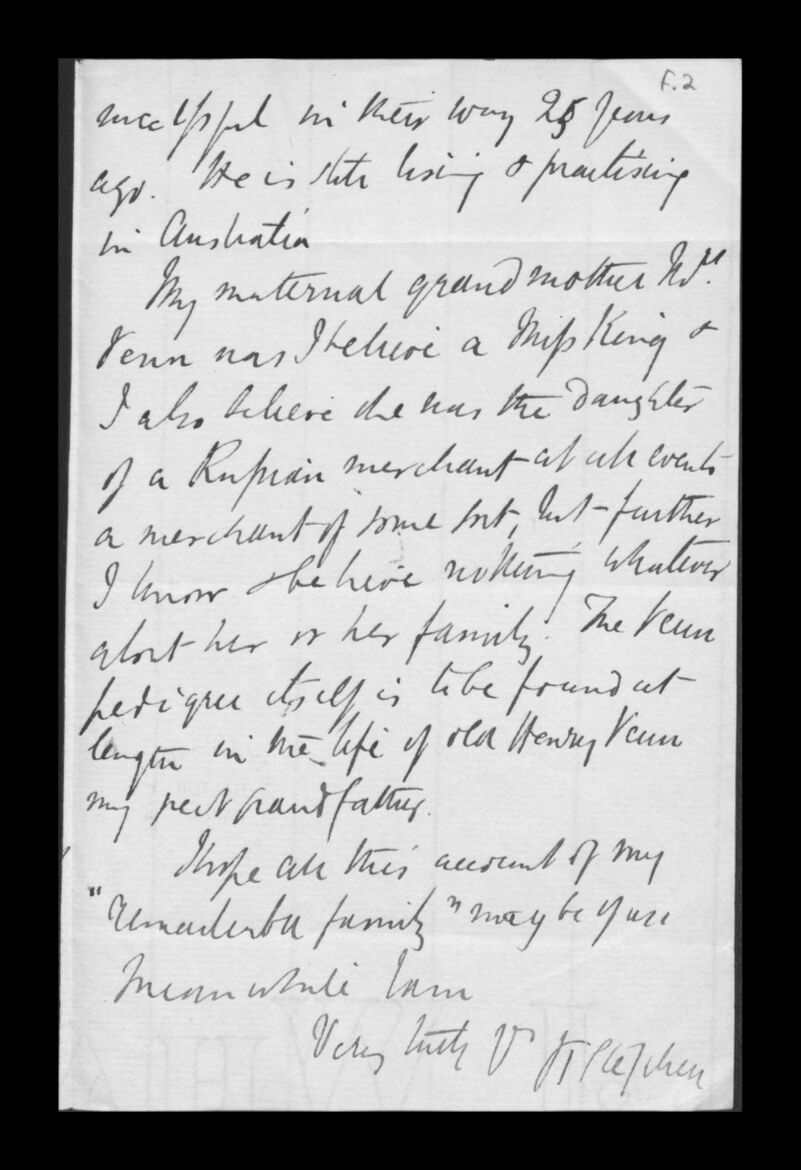 F.2
successful in their way 25 years
ago. He is still living & practising
in Australia
My maternal grandmother Mrs.
Venn was I believe a Miss King &
I also believe she was the daughter
of a Russian merchant at all events
a merchant of some sort, but further
I know & believe nothing whatever
about her or her family. The Venn
pedigree itself is to be found at
length in the life of old Henry Venn
my great grandfather.
I hope all this account of my
"remarkable family" may be of use
Meanwhile I am
Very truly yrs J F Stephen